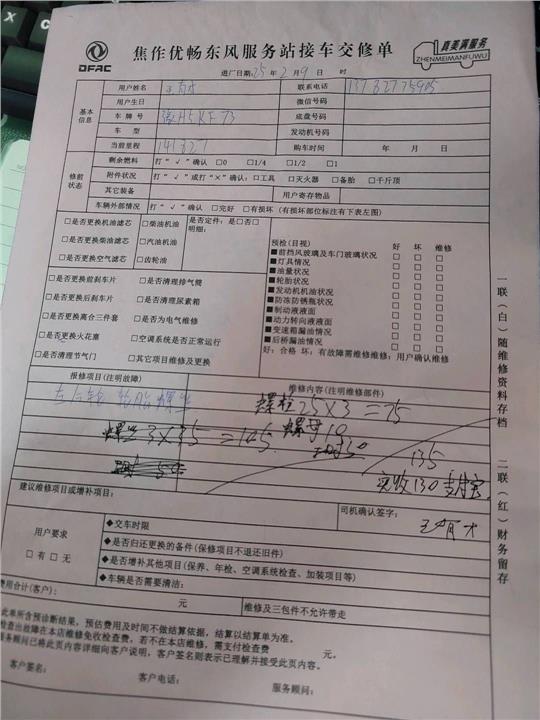 DFAC
焦作优畅东风服务站接车交修单
真美满服务
ZHENMEIMANFUWU
进厂日期:25年2月9日 时
基本信息
用户姓名 王有才 联系电话
用户生日 微信号码
车牌号 底盘号码
车型 发动机号码
当前里程 141327 购车时间 年 月 日
修前状态
剩余燃料 打“√”确认 □0 □1/4 □1/2 □1
附件状况 打“√”或打“×”确认:□工具 □灭火器 □备胎 □千斤顶
其它装备 用户寄存物品
车辆外部情况 打“√”确认 □完好 □有损坏(有损坏部位标注有下表左图)
□是否更换机油滤芯 □柴油机油 是否定件:是□否□
□是否更换柴油滤芯 □汽油机油 明细:
□是否更换空气滤芯 □齿轮油
□是否更换前刹车片 □是否清理排气筒
□是否更换后刹车片 □是否清理尿素箱
□是否更换离合三件套 □是否为电气维修
□是否更换火花塞 □空调系统是否正常运行
□是否清理节气门 □其它项目维修及更换
预检(目视) 好 坏 维修
■前挡风玻璃及车门玻璃状况 □ □ □
■灯具情况 □ □ □
■油量状况 □ □ □
■轮胎状况 □ □ □
■发动机机油状况 □ □ □
■防冻防锈瓶状况 □ □ □
■制动液液面 □ □ □
■动力转向液液面 □ □ □
■变速箱漏油情况 □ □ □
■后桥漏油情况 □ □ □
好:合格 坏:有故障需维修维修:用户确认维修
报修项目(注明故障) 维修内容(注明维修部件)
左后轮 轮胎螺丝
螺栓25×3=75
螺丝3×35=105 螺母10
135
实收130 支付宝
建议维修项目或增补项目:
司机确认签字:
王有才
用户要求
□有□无
◆交车时限
◆是否归还更换的备件(保修项目不退还旧件)
◆是否增补其他项目(保养、年检、空调系统检查、加装项目等)
◆车辆是否需要清洁:
费用合计(客户): 元 维修及三包件不允许带走
此单所含预诊断结果,预估费用及时间不做结算依据,结算以结算单为准。
检查出故障在本店维修免收检查费,若不在本店维修,需支付检查费 元。
服务顾问已将此页内容详细向客户说明,客户签名则表示已理解并接受此页内容。
客户签名: 客户电话: 服务顾问:
一联(白)随维修资料存档 二联(红)财务留存